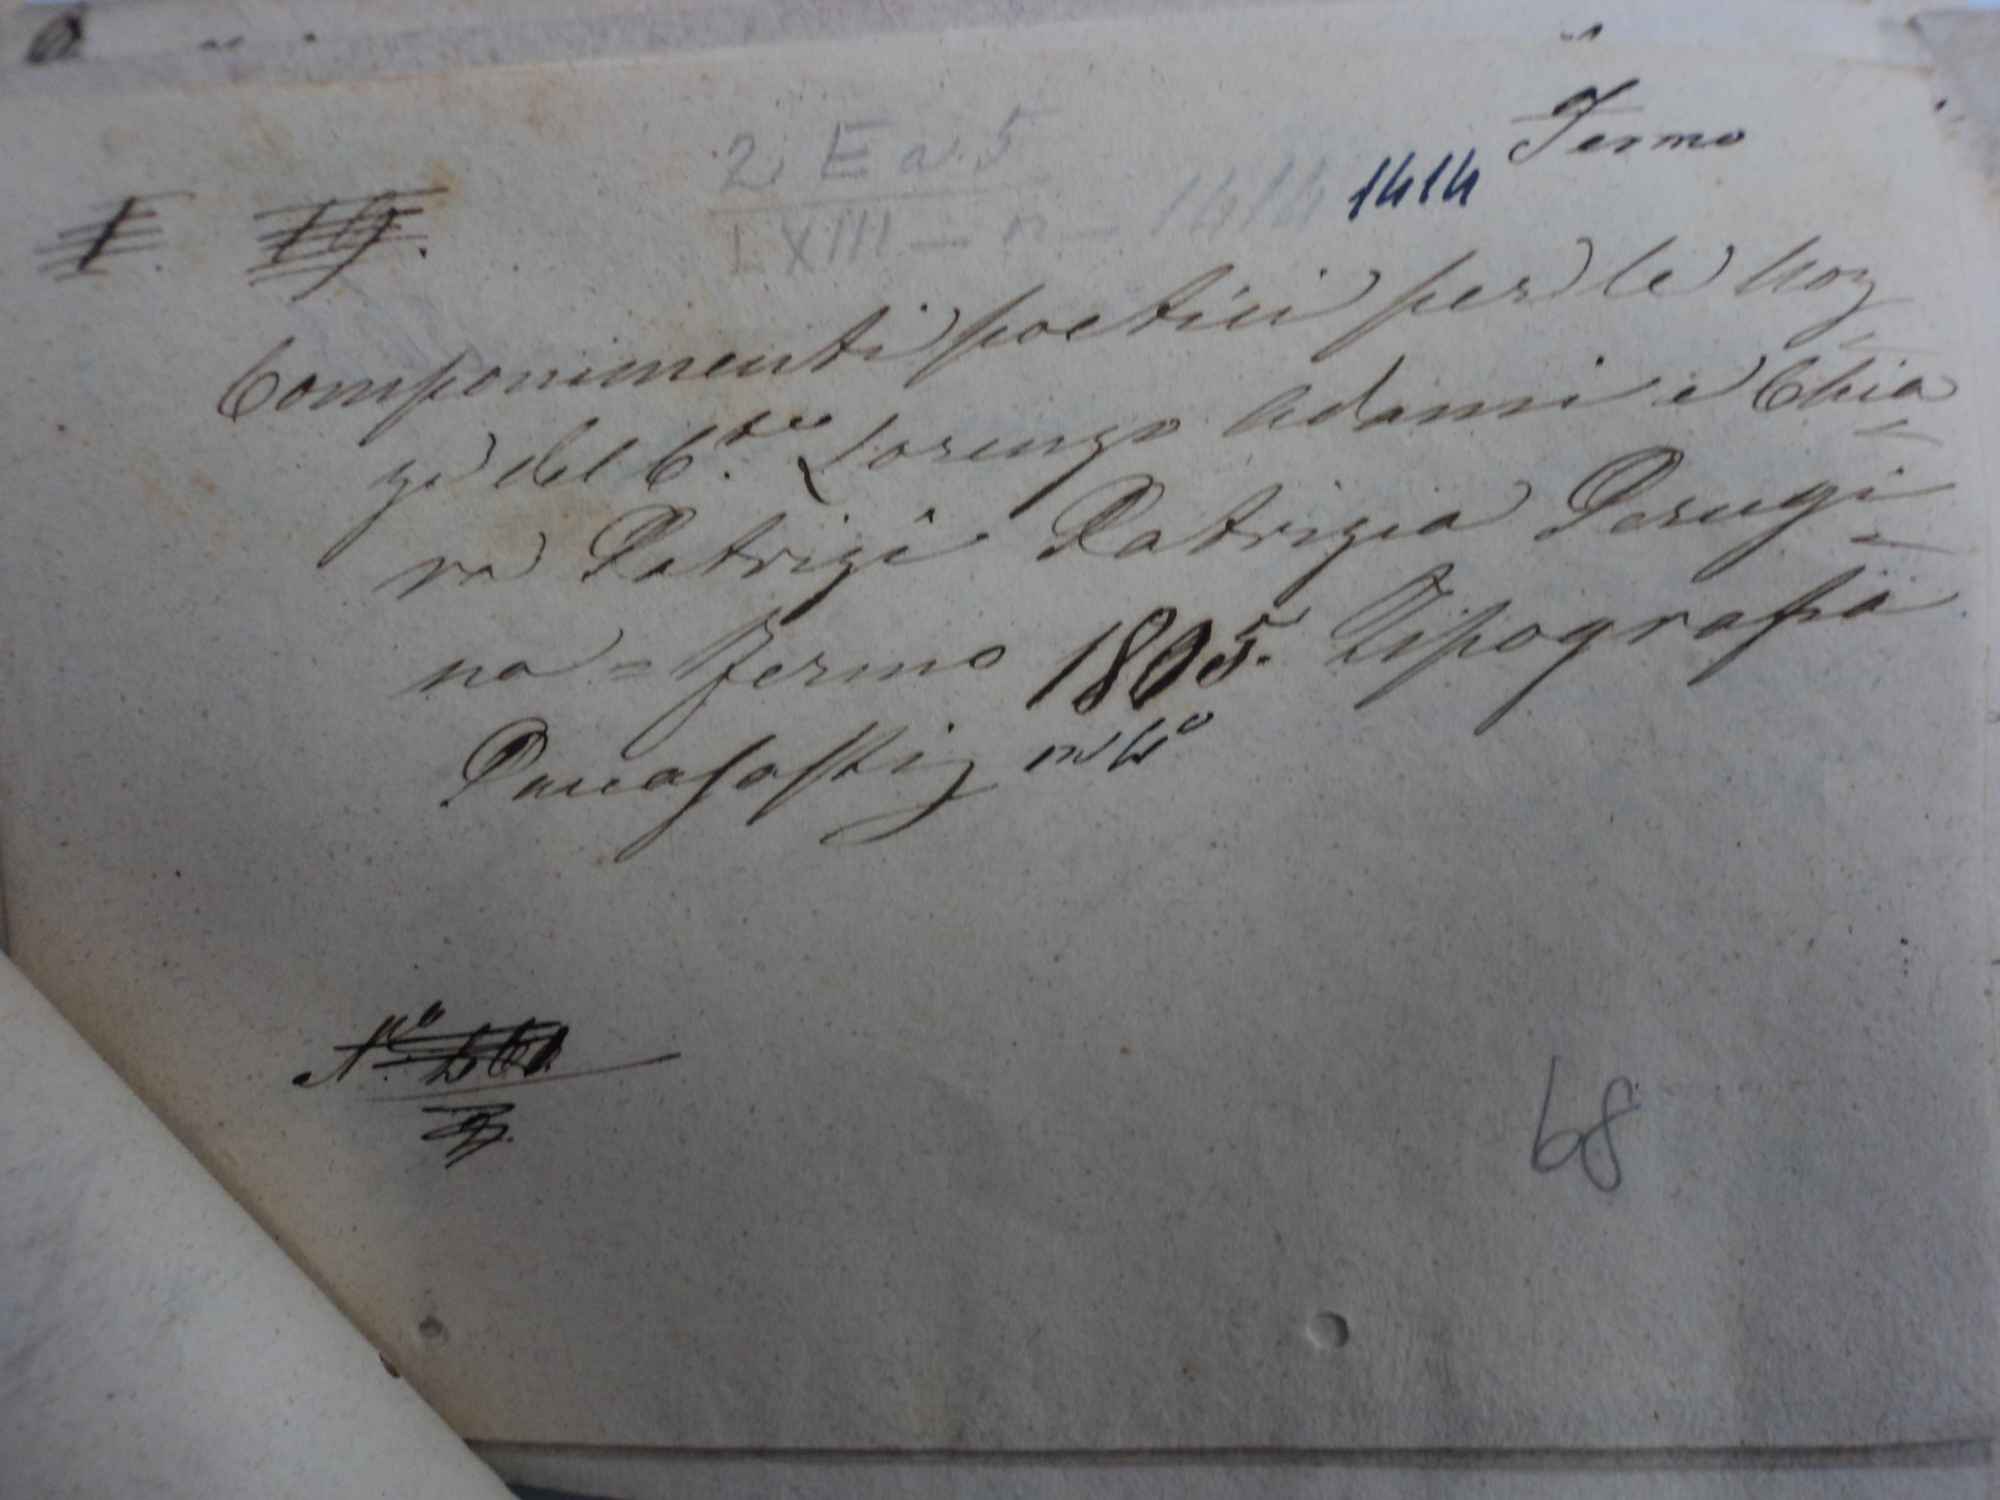 Fermo
2 E a. 5
LXIII - n - 1414 1414
I.
Componimenti poetici per le noz-
ze del C.te Lorenzo Adami e Chia-
ra Patrizi Patrizia Perugi-
na = Fermo 1805. Tipografia
in 4°
N°
68